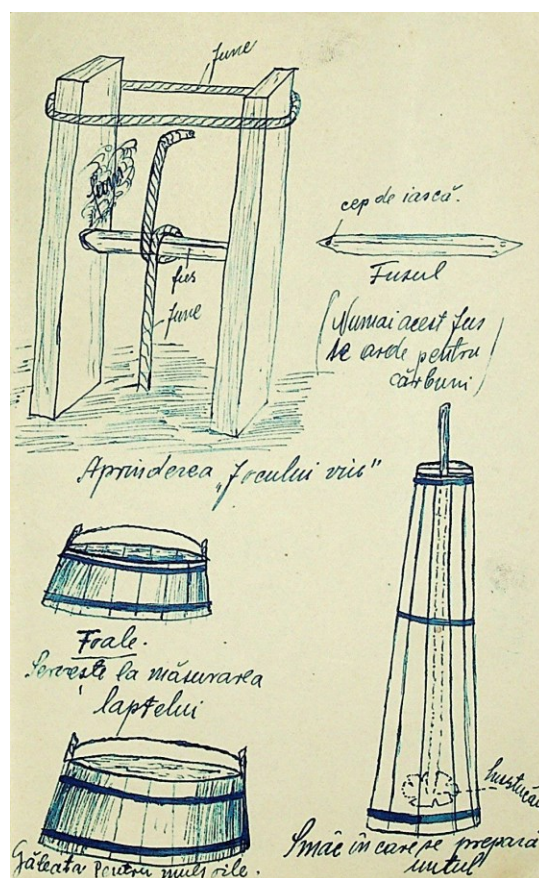 fune
cep de iască.
fus
fune
Fusul
(Numai acest fus
se arde pentru
cărbuni)
Aprinderea „focului viu"
Foale.
Servește la măsurarea
laptelui
Găleata pentru muls oile.
în care se prepară
untul